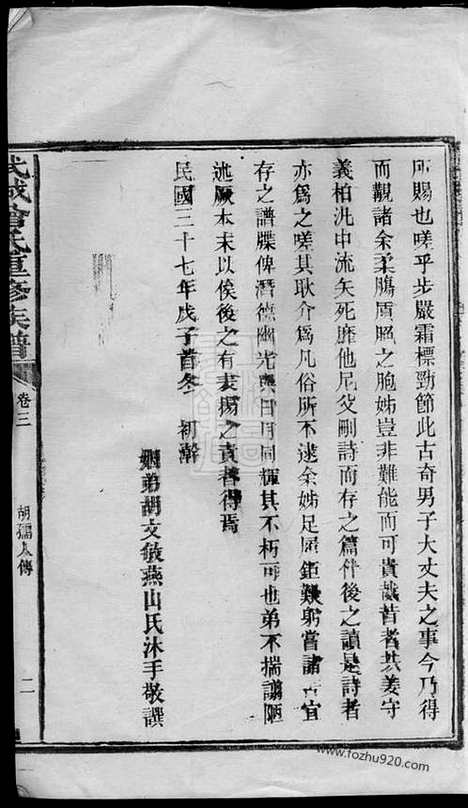 所賜也嗟乎步嚴霜標勁節此古奇男子大丈夫之事今乃得
而覯諸余柔腸盾照之胞姊豈非難能而可貴哉昔者共姜守
義柏汎中流矢死靡他尼父刪詩而存之篇什後之讀是詩者
亦爲之嗟其耿介爲凡俗所不逮余姊足履鉅艱躬嘗諸宜
存之譜牒俾潛德幽光與日月同輝其不朽可也弟不揣譾陋
述厥本末以俟後之有表揚之責者得焉
民國三十七年戊子首冬 初澣
姻弟胡文敏燕山氏沐手敬譔
武城曾氏重修族譜
卷三
胡孺人傳
二
www.fozhu920.com